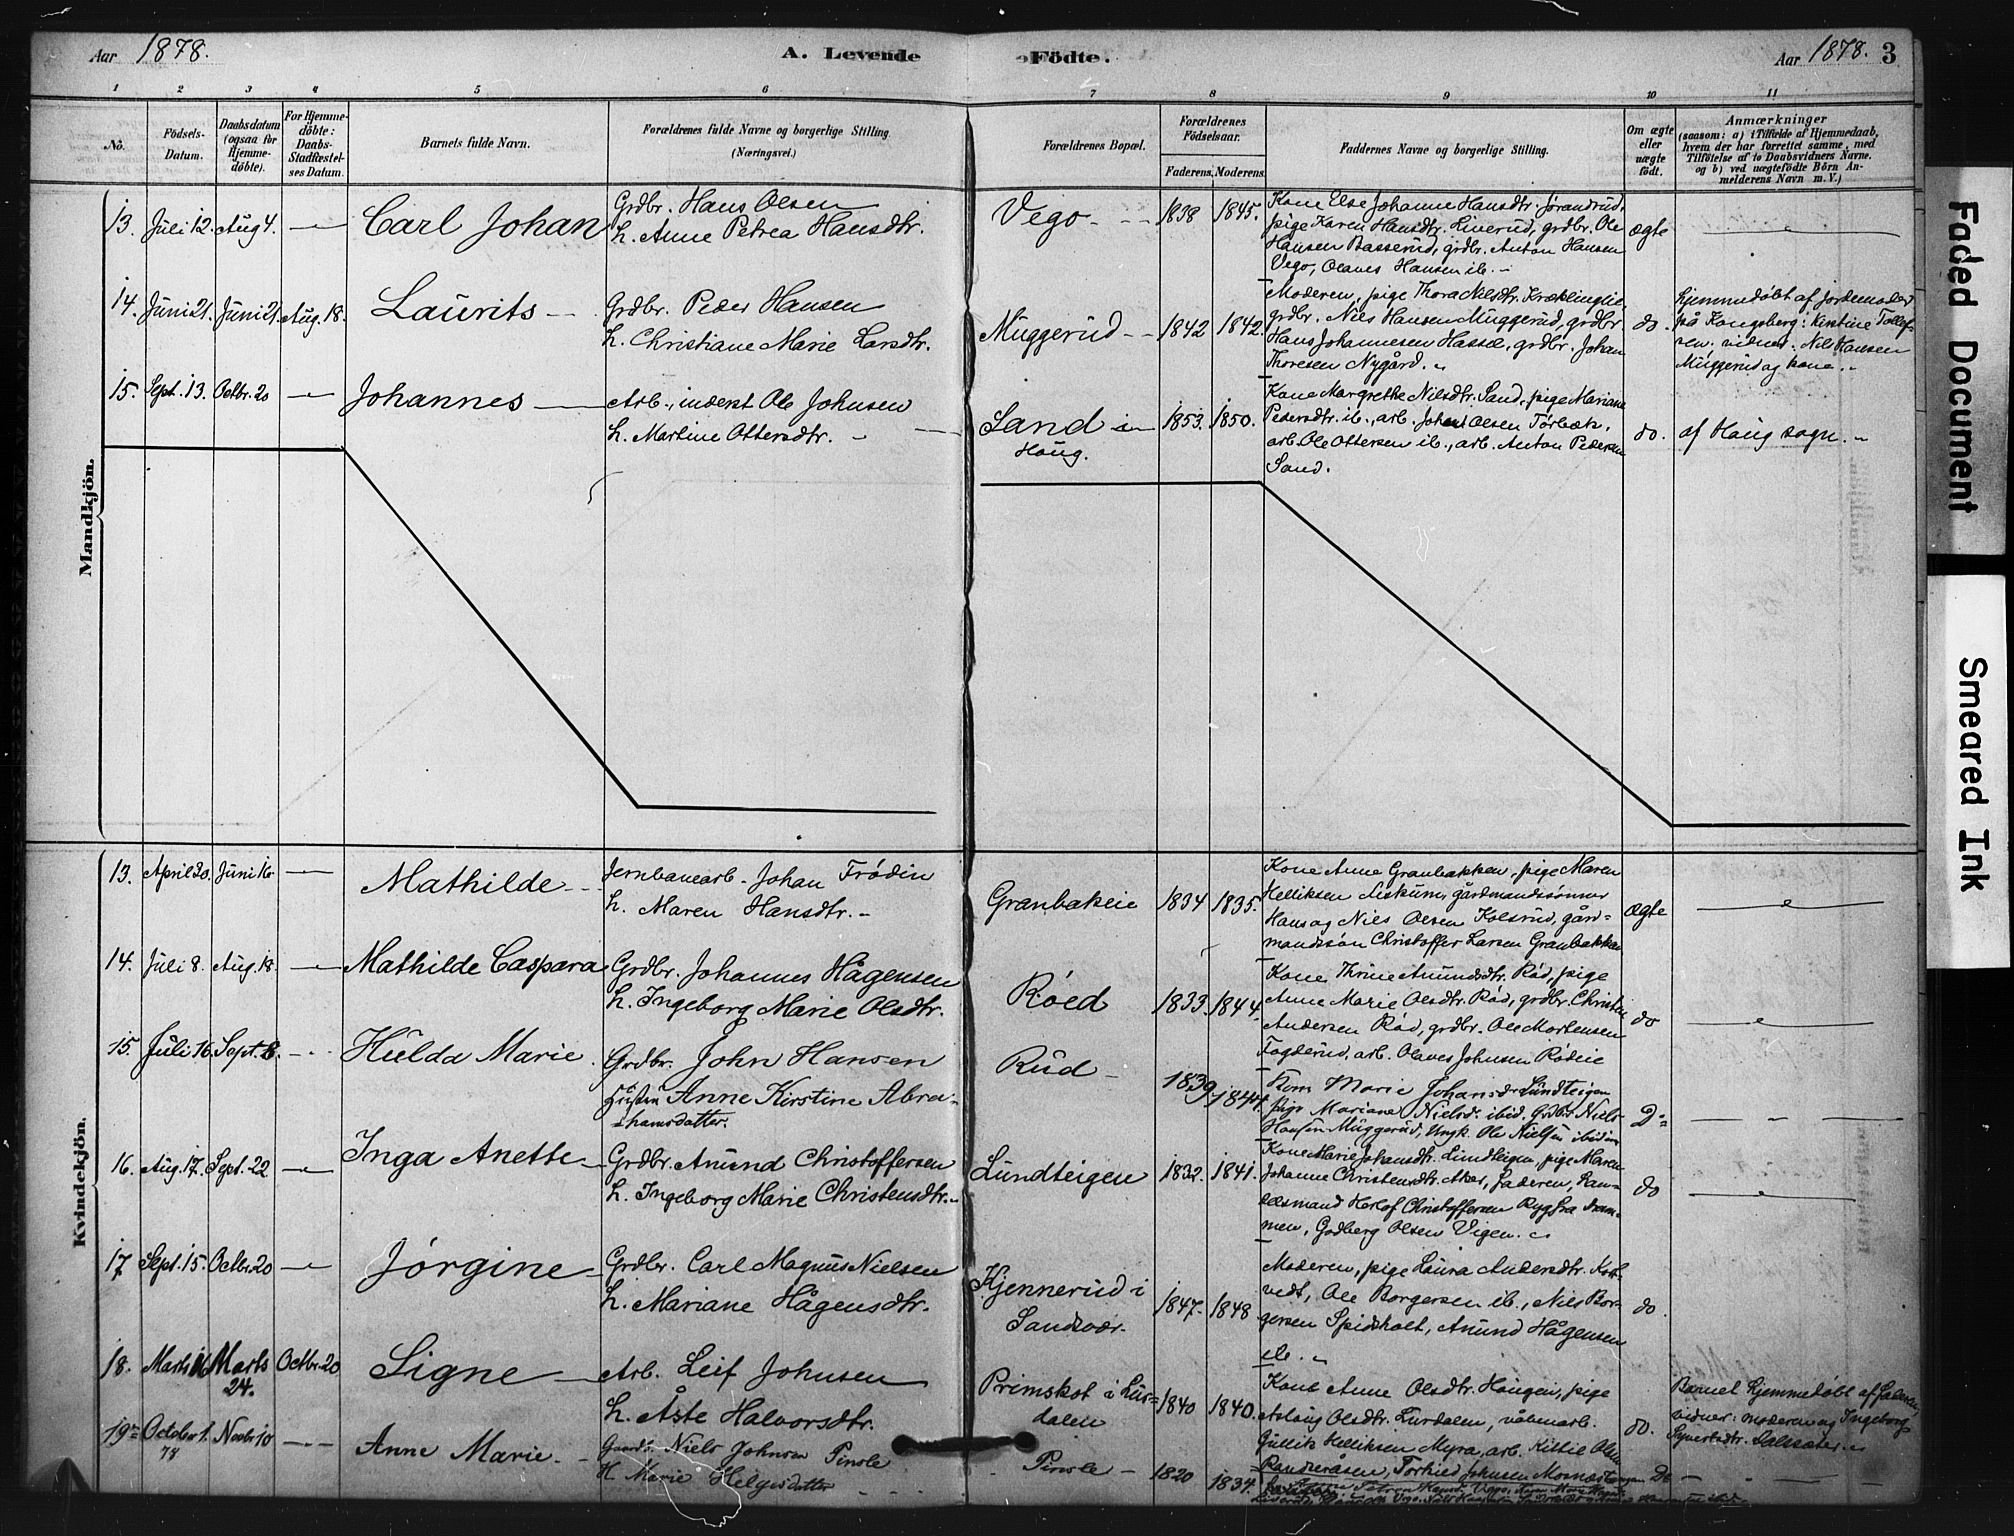 Aar 1878.
A. Levende Födte.
Aar 1878. 3
1 2 3 4 5 6 7 8 9 10 11
No.
Födsels-Datum.
Daabsdatum (ogsaa for Hjemme-döbte).
For Hjemme-döbte: Daabs-Stadfæstel-ses Datum.
Barnets fulde Navn.
Forældrenes fulde Navne og borgerlige Stilling.
(Næringsvei.)
Forældrenes Bopæl.
Forældrenes Födselsaar.
Faderens. Moderens.
Faddernes Navne og borgerlige Stilling.
Om ægte eller uægte födt.
Anmærkninger
(saasom: a) i Tilfælde af Hjemmedaab,
hvem der har forrettet samme, med
Tilföielse af to Daabsvidners Navne.
og b) ved uægtefödte Börn An-
melderens Navn m. V.)
Mandkjön.
13. Juli 12. Aug 4. — Carl Johan
Grdbr. Hans Olsen
h. Anne Petrea Hansdtr.
Vego - 1838 1845.
Kone Else Johanne Hansdtr. Jørandrud,
pige Karen Hansdtr. Liverud, grdbr. Ole
Hansen Basserud, grdbr. Anton Hansen
Vego, Olaves Hansen ib.
ægte
14. Juni 21. Juni 21. Aug. 18. Laurits
Grdbr. Peder Hansen
h. Christiane Marie Larsdtr.
Muggerud 1842 1842.
Moderen, pige Thora Nilsdtr. Kræklinglie
grdbr. Nils Hansen Muggerud, grdbr
Hans Johannesen Hassel, grdbr. Johan
Thoresen Nygård.
do.
hjemmedøbt af jordemoder
på Kongsberg: Kirstine Tollef-
sen. vidner: Nils Hansen
Muggerud og kone.
15. Sept. 13. Octbr. 20 — Johannes
Arb., inderst Ole Johnsen
h. Martine Ottersdtr.
Sand i
Houg.
1853. 1850.
Kone Margrethe Nilsdtr. Sand, pige Mariane
Pedersdtr. ib., arb. Johan Olsen Tørbæk,
arb. Ole Ottersen ib., arb. Anton Pedersen
Sand.
do. af Houg sogn.
Kvindekjön.
13. April 20. Juni 16 — Mathilde
Jernbanearb. Johan Frødin
h. Maren Hansdtr.
Granbakeie 1834 1835.
Kone Anne Granbakken, pige Maren
Helliksen Liskum, gårdmandssønner
Hans og Niels Olsen Kolsrud, gård=
mandssøn Christoffer Larsen Granbakken
ægte
14. Juli 8. Aug. 18. — Mathilde Caspara
Grdbr. Johannes Hågensen
h. Ingeborg Marie Olsdtr.
Røed 1833. 1844.
Kone Thrine Amundsdtr. Rød, pige
Anne Marie Olsdtr. Rød, grdbr. Christen
Andersen Rød, grdbr. Ole Mortensen
Fogderud, arb. Olaves Johnsen Rødeie
do
15. Juli 16. Sept. 8. Hulda Marie
Grdbr. John Hansen
Hustru Anne Kirstine Abra-
hamsdatter.
Rud 1839 1844.
Kone Marie Johansd. Lundteigen
pige Mariane Nielsd. ibid. Grdbr. Niels
Hansen Muggerud, Ungk. Ole Nielsen ibidem
D=
16. Aug. 17. Sept. 22 — Inga Anette
Grdbr. Amund Christoffersen
h. Ingeborg Marie Christensdtr.
Lundteigen 1832. 1841.
Kone Marie Johansdtr. Lundteigen, pige Maren
Johanne Christensdtr. Aker, faderen, han=
delsmand Herlof Christoffersen Ryg fra Dram=
men, Godberg Olsen Vigen.
do
17 Sept. 15. Octbr. 20 — Jørgine
Grdbr. Carl Magnus Nielsen
h. Mariane Hågensdtr.
Kjennerud i
Sandsvær.
1847. 1848
Moderen, pige Laura Andersdtr. Kob-
vedt, Ole Borgersen ib., Nils Bor-
gersen Spidsholt, Amund Hågensen
ib.
do.
18. Marts 16 Marts 24. Octbr. 20 Signe
Arb. Leif Johnsen
h. Åste Halvorsdtr.
Primskot i Lur=
dalen
1840 1840.
Kone Anne Olsdtr. Hougen, pige
Aslaug Olsdtr. Lurdalen, våbenarb.
Gullik Helliksen Myra, arb. Kittil Olsen
Randeråsen, Torkild Johnsen Mornæstangen
do.
Barnet hjemmedøbt af faderen,
vidner: moderen og Ingeborg
Syvertsdtr. Dalssæter.
19= October 1. 78 Novbr 10 — Anne Marie
Gaardb. Niels Johnsen Pinsle
H. Marie Helgesdatter
Pinsle 1820 1834.
Do
Faded Document
Smeared Ink